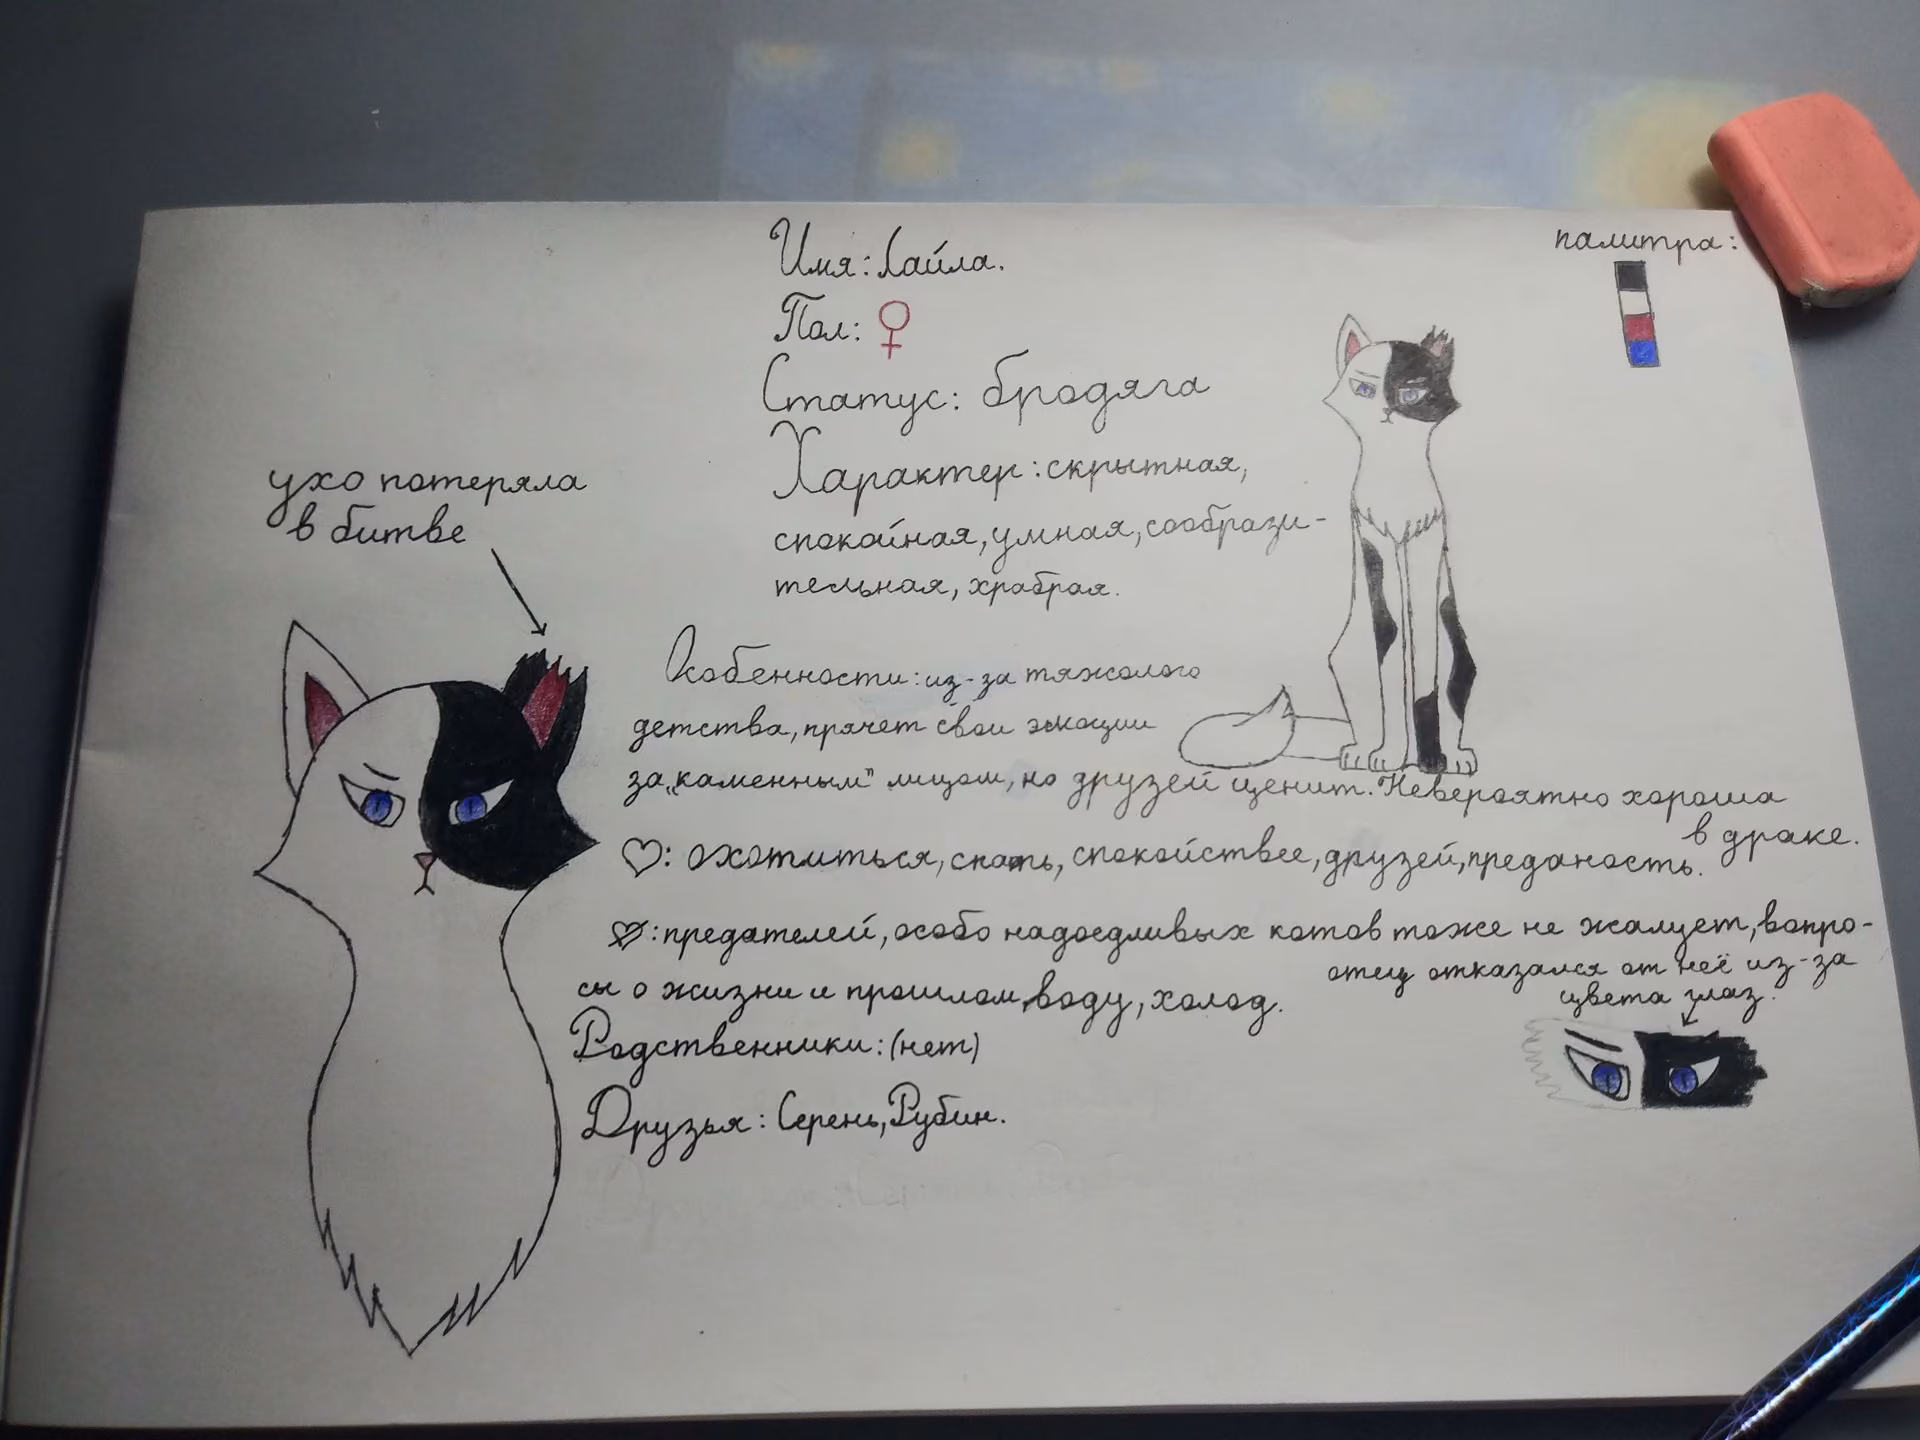 Имя: Лайла.
Пол: ♀
Статус: бродяга
Характер: скрытная,
спокойная, умная, сообрази-
тельная, храбрая.
палитра:
ухо потеряла
в битве
Особенности: из-за тяжолого
детства, прячет свои эмоции
за „каменным" лицом, но друзей ценит. Невероятно хороша
в драке.
♡: охотиться, спать, спокойствее, друзей, преданость.
: предателей, особо надоедливых котов тоже не жалует, вопро-
сы о жизни и прошлом, воду, холод.
отец отказался от неё из-за
цвета глаз.
Родственники: (нет)
Друзья: Серень, Рубин.